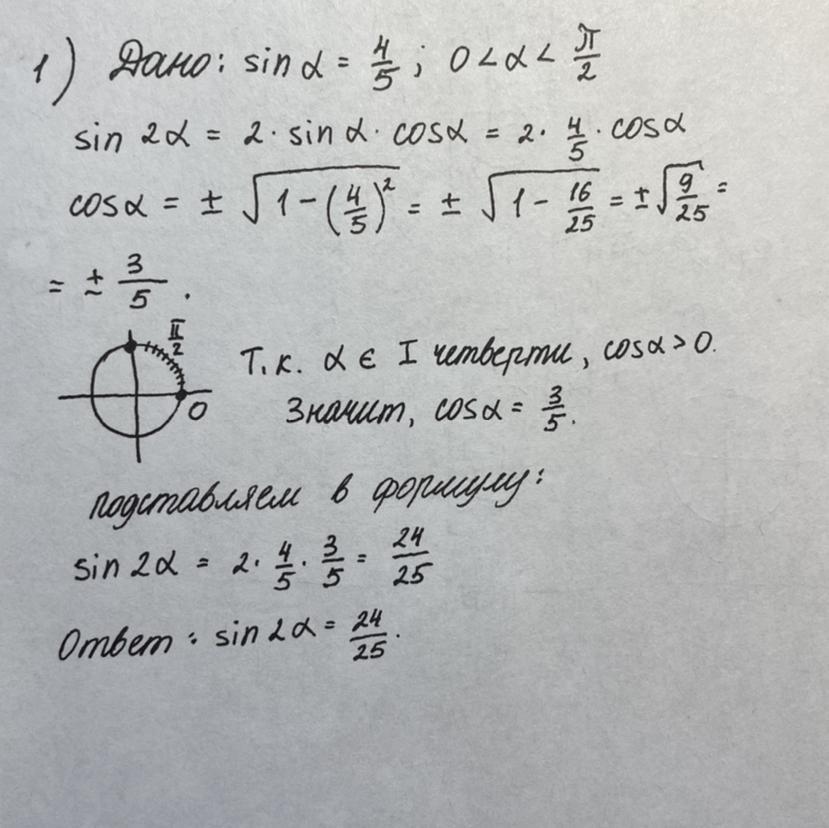 1) Дано: sin α = 4/5; 0 < α < π/2
sin 2α = 2 · sin α · cos α = 2 · 4/5 · cos α
cos α = ± √(1 − (4/5)²) = ± √(1 − 16/25) = ± √(9/25) =
= ± 3/5.
π/2
Т.к. α ∈ I четверти, cos α > 0.
0
Значит, cos α = 3/5.
подставляем в формулу:
sin 2α = 2 · 4/5 · 3/5 = 24/25
Ответ: sin 2α = 24/25.